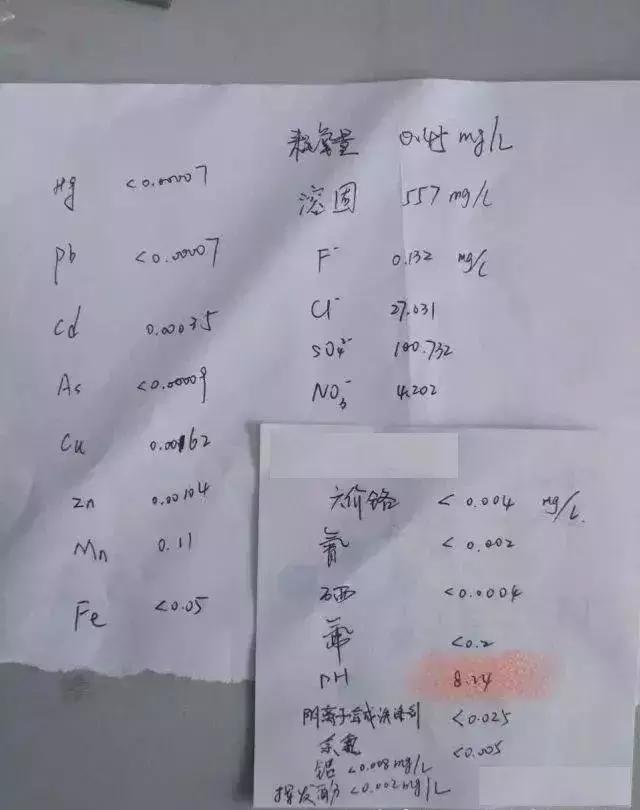 Hg <0.00007
Pb <0.00007
Cd 0.00035
As <0.00009
Cu 0.00162
Zn 0.00104
Mn 0.11
Fe <0.05
耗氧量 0.45 mg/L
溶固 557 mg/L
F⁻ 0.132 mg/L
Cl⁻ 27.031
SO₄²⁻ 100.732
NO₃⁻ 4.202
六价铬 <0.004 mg/L.
<0.002
硒 <0.0004
<0.2
pH 8.24
阴离子合成洗涤剂 <0.025
余氯 <0.005
铝 <0.008 mg/L
挥发酚 <0.002 mg/L